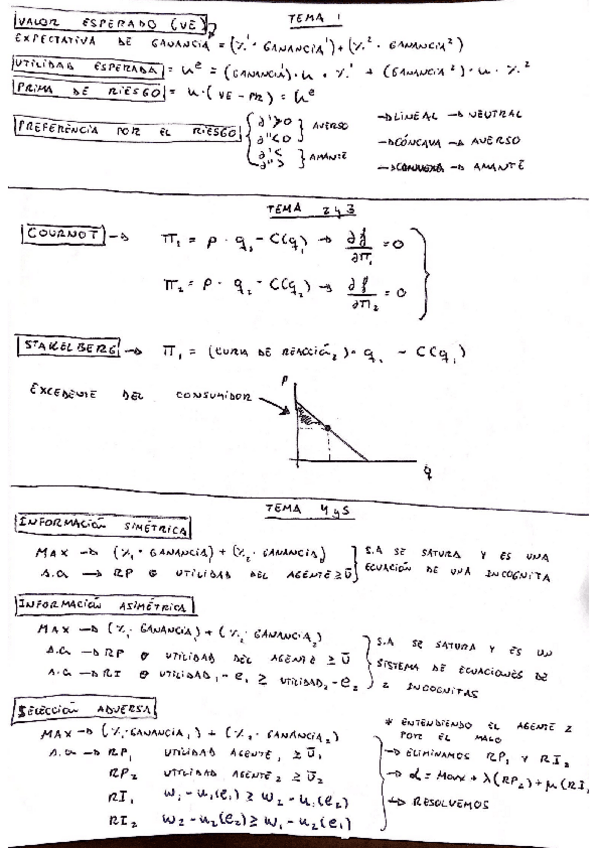 TEMA 1
VALOR ESPERADO (VE)
EXPECTATIVA DE GANANCIA = (%¹ · GANANCIA¹) + (%² · GANANCIA²)
UTILIDAD ESPERADA = uᵉ = (GANANCIA¹) · u · %¹ + (GANANCIA²) · u · %²
PRIMA DE RIESGO = u · (VE - PR) = uᵉ
PREFERENCIA POR EL RIESGO
∂'>0
∂''<0 } AVERSO
∂'<
∂''> } AMANTE
→ LINEAL → NEUTRAL
→ CÓNCAVA → AVERSO
→ CONVEXA → AMANTE
TEMA 2 y 3
COURNOT → π₁ = p · q₁ - C(q₁) → ∂f/∂π₁ = 0
π₂ = p · q₂ - C(q₂) → ∂f/∂π₂ = 0
STAKELBERG → π₁ = (CURVA DE REACCIÓN₂) · q₁ - C(q₁)
EXCEDENTE DEL CONSUMIDOR
p
q
TEMA 4 y 5
INFORMACIÓN SIMÉTRICA
MAX → (%₁ · GANANCIA₁) + (%₂ · GANANCIA₂)
s.a → RP UTILIDAD DEL AGENTE ≥ U̅
S.A SE SATURA Y ES UNA
ECUACIÓN DE UNA INCOGNITA
INFORMACIÓN ASIMÉTRICA
MAX → (%₁ · GANANCIA₁) + (%₂ · GANANCIA₂)
s.a → RP UTILIDAD DEL AGENTE ≥ U̅
s.a → RI UTILIDAD₁ - e₁ ≥ UTILIDAD₂ - e₂
S.A SE SATURA Y ES UN
SISTEMA DE ECUACIONES DE
2 INCOGNITAS
SELECCIÓN ADVERSA
MAX → (%₁ · GANANCIA₁) + (%₂ · GANANCIA₂)
s.a → RP₁ UTILIDAD AGENTE₁ ≥ U̅₁
RP₂ UTILIDAD AGENTE₂ ≥ U̅₂
RI₁ w₁ - u₁(e₁) ≥ w₂ - u₁(e₂)
RI₂ w₂ - u₂(e₂) ≥ w₁ - u₂(e₁)
* ENTENDIENDO EL AGENTE 2
POR EL MALO
→ ELIMINAMOS RP₁ Y RI₂
→ L = Max + λ(RP₂) + μ(RI₁
→ RESOLVEMOS